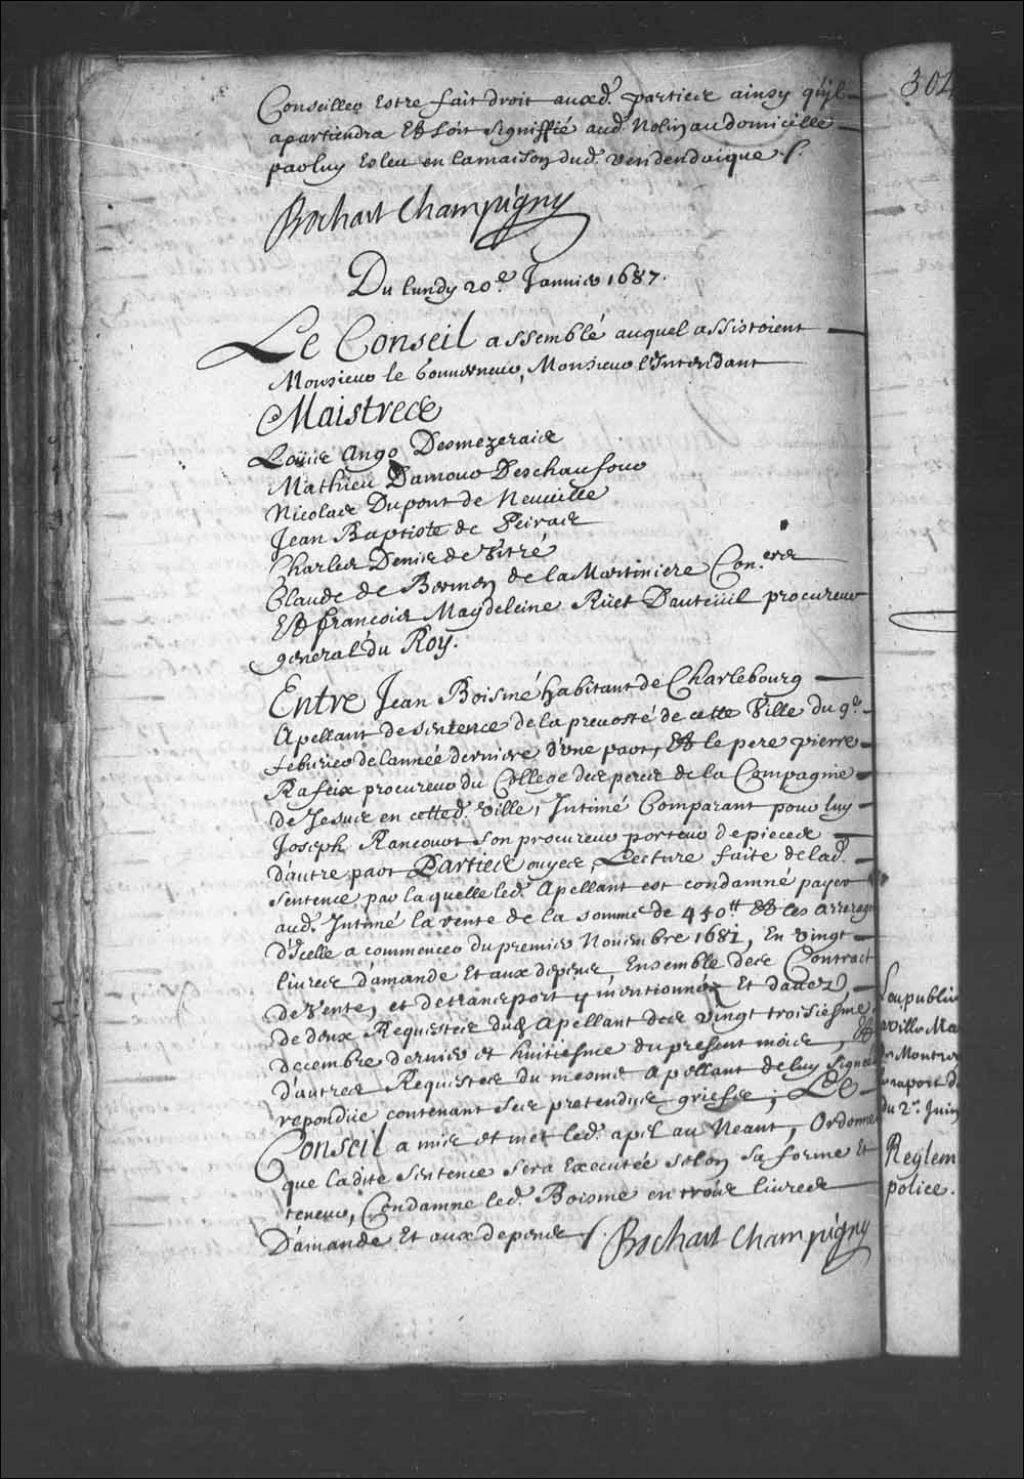 Conseiller Estre fait droit auxd. parties ainsy quyl
apartiendra Et soit signiffié aud. Nolin au domicille
par luy Esleu en la maison dud. Vendendaique ./.
Bochart Champigny
Du lundy 20e. Janvier 1687.
Le Conseil assemblé auquel assistoient
Monsieur le Gouverneur, Monsieur l'Intendant
Maistres
Loüis Ango Desmezerais
Mathieu Damour Deschaufour
Nicolas Dupont de Neuville
Jean Baptiste de Peiras
Charles Denis de Vitré
Claude de Bermen de la Martiniere Con.ers
Et françois Magdeleine Rüet Dauteüil procureur
general du Roy.
Entre Jean Boismé habitant de Charlebourg
Apellant de sentence de la prevosté de cette Ville du 9e.
feburier de l'année derniere d'une part, Et le pere pierre
Rafeix procureur du College des peres de la Compagnie
de Jesus en cetted. Ville, Intimé Comparant pour luy
Joseph Rancourt son procureur porteur de pieces
d'autre part Parties ouyes, Lecture faite de lad.
sentence par laquelle led. Apellant est condamné payer
aud. Intimé la rente de la somme de 450tt Et les arrerages
d'Icelle a commencer du premier Novembre 1681, En vingt
livres d'amande Et aux depens, Ensemble des Contract
de Vente, et de transport y mentionnéz Et dattez,
de deux Requestes dud. Apellant des vingt troisiesme
decembre dernier et huitiesme du present mois, Et
d'autres Requestes du mesme apellant de luy signée
repondüe contenant ses pretendus griefs; Le
Conseil a mis et met led. apel au Neant, Ordonne
que ladite sentence sera Executée selon sa forme Et
teneur, Condamne led. Boisme en trois livres
D'amande Et aux depens ./. Bochart Champigny
304
Ville
Montre
raport d
du 2e. Juin
Reglem
police.